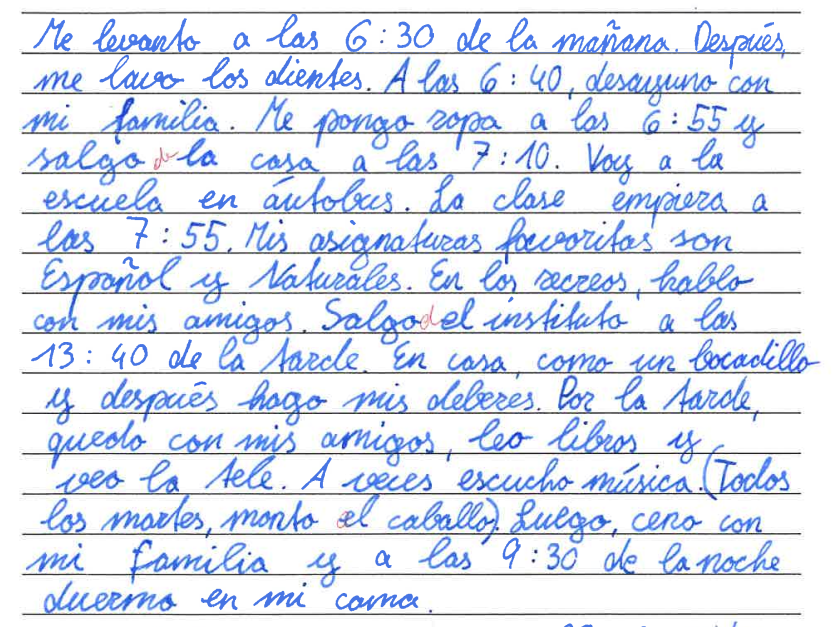 Me levanto a las 6:30 de la mañana. Después,
me lavo los dientes. A las 6:40, desayuno con
mi familia. Me pongo ropa a las 6:55 y
salgo de la casa a las 7:10. Voy a la
escuela en áutobus. La clase empieza a
las 7:55. Mis asignaturas favoritas son
Español y Naturales. En los recreos, hablo
con mis amigos. Salgo del instituto a las
13:40 de la tarde. En casa, como un bocadillo
y después hago mis deberes. Por la tarde,
quedo con mis amigos, leo libros y
veo la tele. A veces escucho música. (Todos
los martes, monto al caballo). Luego, ceno con
mi familia y a las 9:30 de la noche
duermo en mi cama.